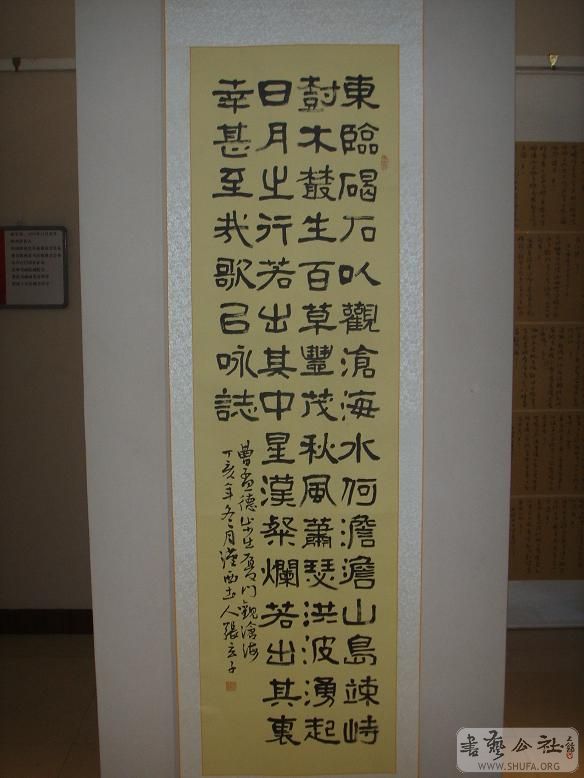 東臨碣石以觀滄海水何澹澹山島竦峙
樹木叢生百草豐茂秋風蕭瑟洪波湧起
日月之行若出其中星漢粲爛若出其裏
幸甚至哉歌㠯咏誌
曹孟德步出夏門觀滄海
丁亥年冬月漢西人張立子
書藝公社
WWW.SHUFA.ORG